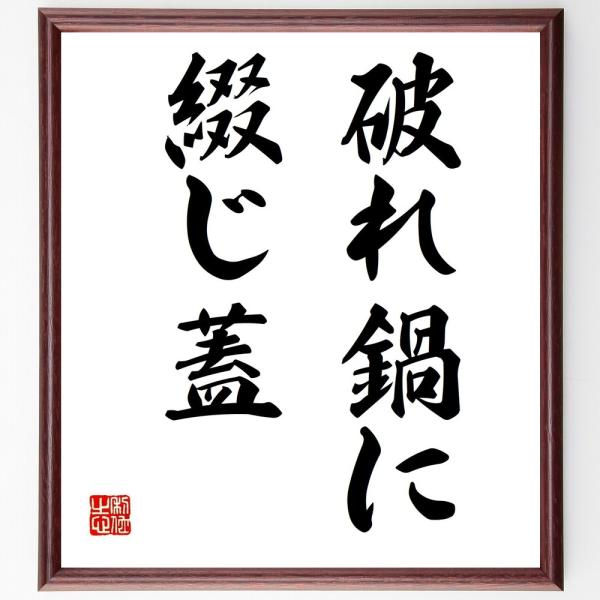 破れ鍋に
綴じ蓋